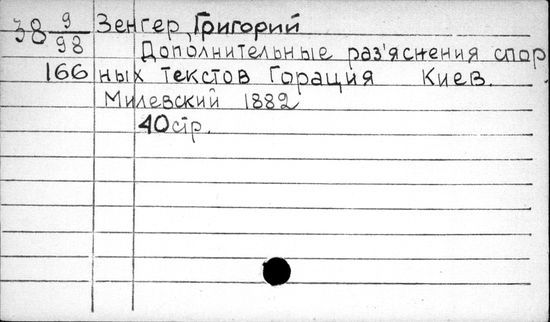 38 9/98 Зенгер, Григорий
Дополнительные раз'яснения спор
166 ных текстов Горация Киев.
Милевский 1882
40 стр.